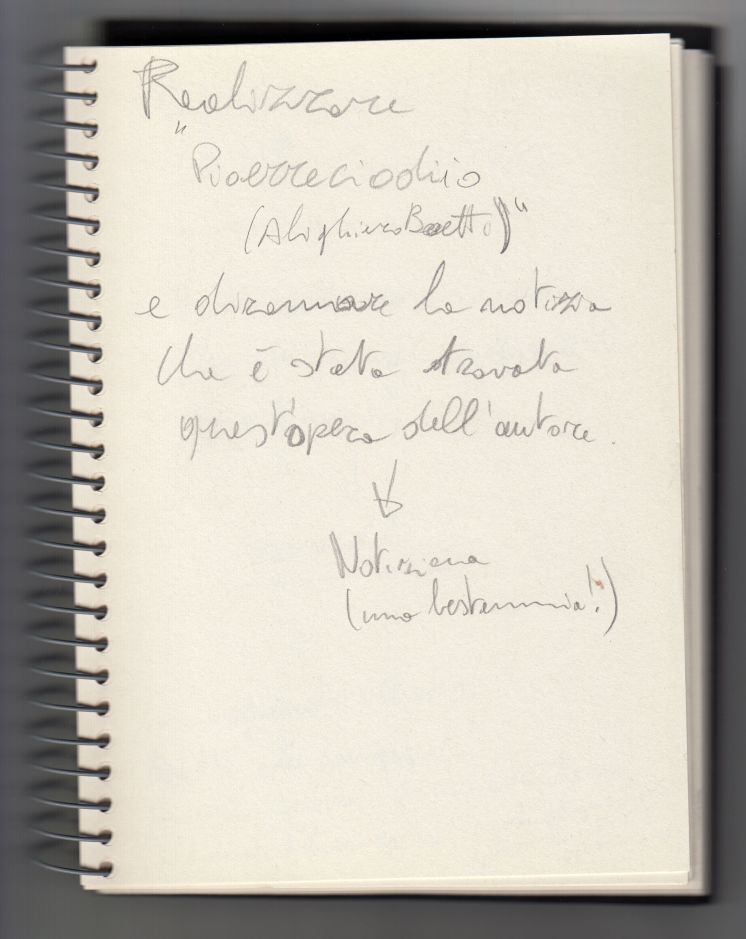 Realizzare
"Pioerreciodiio
(Alighiero Boetti)"
e diramare la notizia
che è stata trovata
quest'opera dell'autore.
↓
Notiziona
(una bestemmia!)